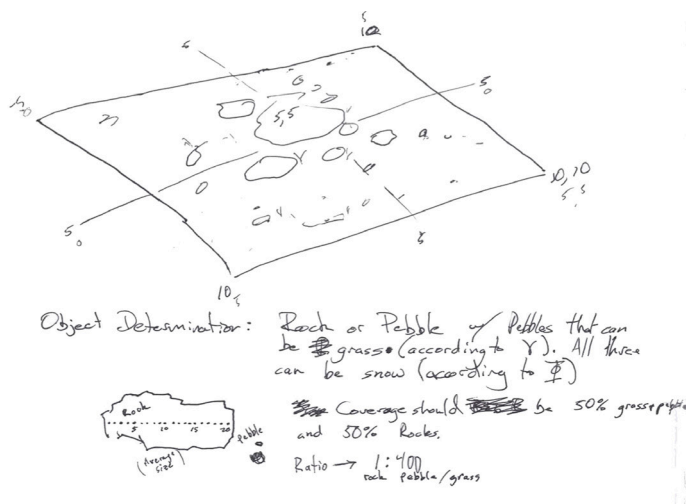 5
10
5
5
0
5,5
10,10
5,5
5
0
5
10
5
Object Determination: Rock or Pebble w/ Pebbles that can
be grass (according to γ). All three
can be snow (according to Φ)
Rook
5 10 15 20
(Average
size)
Pebble
Coverage should be 50% grass+pebble
and 50% Rocks.
Ratio → 1:400
rock pebble/grass